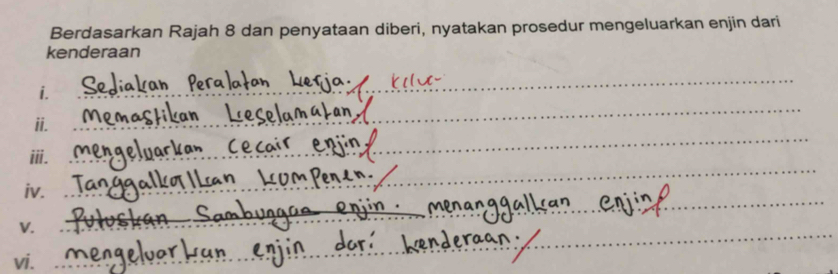 Berdasarkan Rajah 8 dan penyataan diberi, nyatakan prosedur mengeluarkan enjin dari
kenderaan
i. Sediakan Peralatan kerja.
ii. Memastikan keselamatan.
iii. mengeluarkan cecair enjin.
iv. Tanggalkallkan komponen.
v. Putuskan Sambungan enjin. menanggalkan enjin
vi. mengeluarkan enjin dari kenderaan.